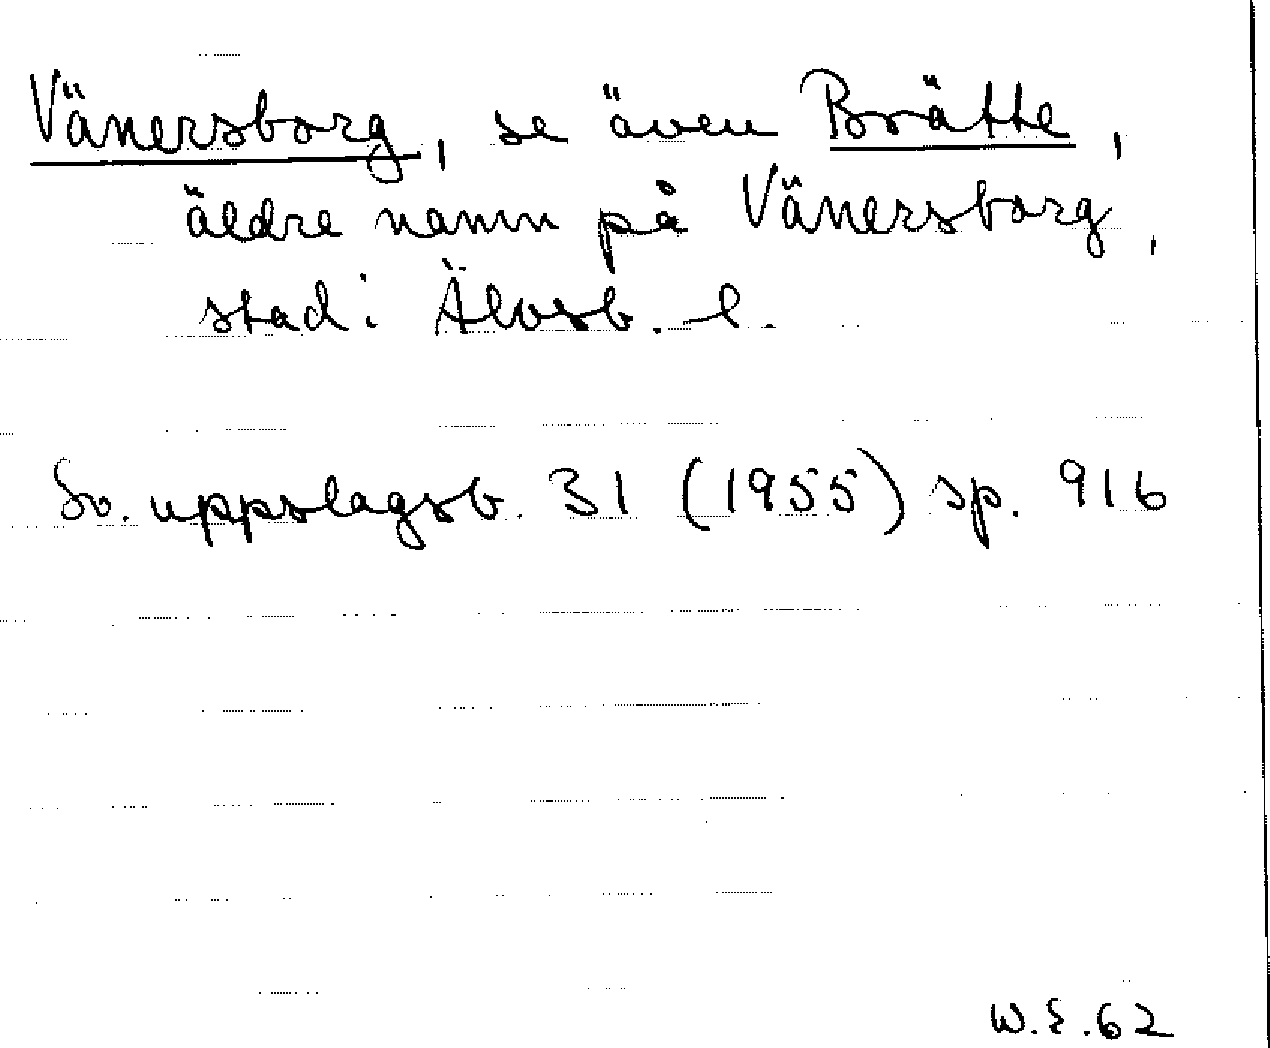 Vänersborg, se även Brätte,
äldre namn på Vänersborg,
stad i Älvsb. l.
Sv. uppslagsb. 31 (1955) sp. 916
W.E.62